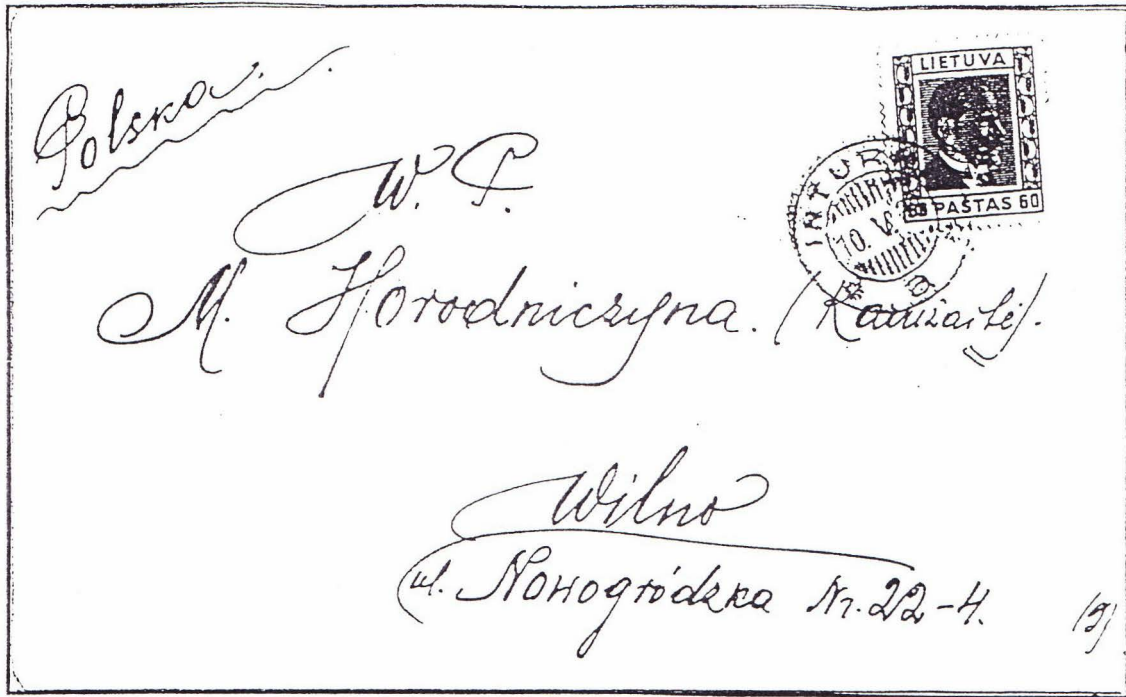 Polska.
LIETUVA
60 PAŠTAS 60
INTUR
10. V
a
W. P.
M. Horodniczyna.
Wilno
ul. Nowogródzka Nr. 22-4.